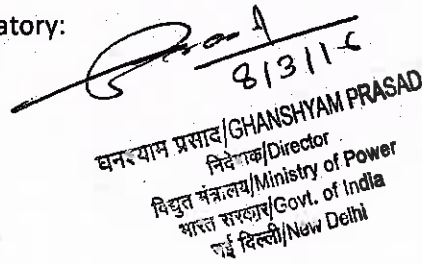 atory:
8/3/16
घनश्याम प्रसाद/GHANSHYAM PRASAD
निदेशक/Director
विद्युत मंत्रालय/Ministry of Power
भारत सरकार/Govt. of India
नई दिल्ली/New Delhi